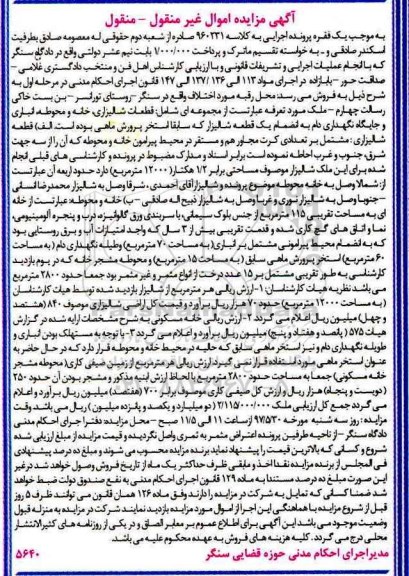 آگهی مزایده اموال غیر منقول - منقول
به موجب یک فقره پرونده اجرایی به کلاسه ۹۶۰۲۳۱ صادره از شعبه دوم حقوقی له معصومه صادق بطرفیت
اسکندر صادقی و - به خواسته تقسیم ماترک و پرداخت ۱/۰۰۰/۰۰۰ بابت نیم عشر دولتی واقع در دادگاه سنگر
که با انجام عملیات اجرایی و تشریفات قانونی و با ارزیابی کارشناس اهل فن و منتخب دادگستری غلامی -
صداقت جور - بابازاده در اجرای مواد ۱۱۲ الی ۱۳۶ / ۱۳۷ الی ۱۴۷ قانون اجرای احکام مدنی در مرحله اول به
شرح ذیل به فروش می رسد محل رقبه مورد اختلاف واقع در سنگر - روستای تورانسر - بن بست خاکی
رسالت چهارم - ملک مورد تعرفه عبارتست از مجموعه ای شامل: قطعات شالیزاری خانه و محوطه انباری
و جایگاه نگهداری دام به انضمام یک قطعه شالیزار که سابقا استخر پرورش ماهی بوده است. الف) قطعه
شالیزاری : مشتمل بر تعدادی کرت مجاور هم و مستقر در محیط پیرامون خانه و محوطه که آن را از سه جهت
شرق، جنوب و غرب احاطه نموده است برابر اسناد و مدارک مضبوط در پرونده و کارشناسی های قبلی انجام
شده برای این ملک شالیزار موصوف مساحتی برابر ۱/۲ هکتار (۱۲۰۰۰ مترمربع) دارد حدود اربعه آن عبارت است
از: شمالا وصل به خانه و محوطه موضوع پرونده و شالیزار آقای احمدی ، شرقا وصل به شالیزار محمدرضا نسائی
- جنوبا وصل به شالیزار تنوری و غربا وصل به شالیزار ذبیح اله صادقی - ب) خانه و محوطه: عبارتست از خانه
ای به مساحت تقریبی ۱۱۵ مترمربع از جنس بلوک سیمانی، با سربندی ورق گالوانیزه، درب و پنجره آلومینیومی،
نما و اتاق های گچ کاری شده و قدمت تقریبی بیش از ۳ سال که واجد امتیازات آب و برق روستایی بود
که به انضمام محیط پیرامونی مشتمل بر انباری (به مساحت ۷۰ مترمربع) وطیله نگهداری دام (به مساحت
۶۰ مترمربع) استخر پرورش ماهی سابق (به مساحت ۱۵ مترمربع) و محوطه مشجر خانه که در یوم بازدید
کارشناسی به طور تقریبی مشتمل بر ۱۵ عدد درخت از انواع مثمر و غیر مثمر بود جمعا حدود ۲۸۰۰ مترمربع
می باشد نظریه هیات کارشناسان: ۱- ارزش ریالی هر مترمربع از شالیزار بازدید شده توسط هیات کارشناسان
(به مساحت ۱۲۰۰۰ مترمربع) حدود ۷۰ هزار ریال برآورد و قیمت کل اراضی شالیزاری موصوف ۸۴۰ (هشتصد
و چهل) میلیون ریال اعلام می گردد ۲- ارزش ریالی خانه مسکونی به شرح مشخصات ارایه شده در گزارش
هیات ۵۷۵ ( پانصد و هفتاد و پنج) میلیون ریال برآورد و اعلام می گردد ۳- با توجه به مستهلک بودن انباری و
طویله نگهداری دام و نیز استخر ماهی سابق که حالیه در محیط خانه و محوطه قرار دارد که در حال حاضر به
عنوان استخر ماهی مورد استفاده قرار نمی گیرد ارزش ریالی هر مترمربع از زمین صیفی کاری (محوطه مشجر
خانه مسکونی) جمعا به مساحت حدود ۲۸۰۰ مترمربع با لحاظ ارزش ابنیه مذکور و مشجر بودن آن حدود ۲۵۰
(دویست و پنجاه) هزار ریال و ارزش کل صیفی کاری موصوف برابر ۷۰۰ (هفتصد) میلیون ریال برآورد و اعلام
می گردد جمع کل ارزیابی ملک ۲/۱۱۵/۰۰۰/۰۰۰ (دو میلیارد و یکصد و پانزده میلیون) ریال می باشد وقت
مزایده : روز سه شنبه مورخه ۹۷/۵/۳۰ از ساعت ۱۱ الی ۱۱/۵ صبح - محل مزایده: دفتر اجرای احکام مدنی
دادگاه سنگر - از ناحیه طرفین پرونده اعتراض مثمر به ثمری واصل نگردیده و قیمت مزایده از مبلغ ارزیابی شده
شروع و کسانی که بالاترین قیمت را پیشنهاد نماید برنده مزایده محسوب می شوند و مبلغ ده درصد پیشنهادی
فی المجلس از برنده مزایده نقدا اخذ و مابقی ظرف حداکثر یک ماه از تاریخ فروش وصول خواهد شد در غیر
این صورت مبلغ ده درصد مستندا به ماده ۱۲۹ قانون اجرای احکام مدنی به نفع صندوق دولت ضبط خواهد
شد ضمنا کسانی که تمایل به شرکت در مزایده را دارند وفق ماده ۱۲۶ همان قانون می توانند ظرف ۵ روز
قبل از شروع مزایده با هماهنگی این اجرا از اموال مورد مزایده بازدید نمایند شرکت در مزایده به منزله قبول
وضعیت موجود می باشد این آگهی برای اطلاع عموم بر معابر الصاق و در یکی از روزنامه های کثیرالانتشار
محلی درج می گردد. کلیه هزینه های فروش به عهده محکوم علیه می باشد.
مدیر اجرای احکام مدنی حوزه قضایی سنگر
۵۶۴۰